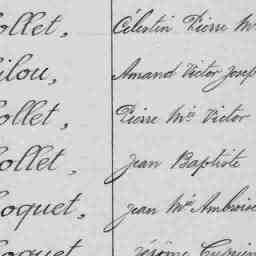 ollet, Célestin Pierre M
ilou, Amand Victor Josep
ollet, Pierre Mie Victor
ollet, Jean Baptiste
oquet, Jean Mie Ambroise
oquet Jérôme Cyprien